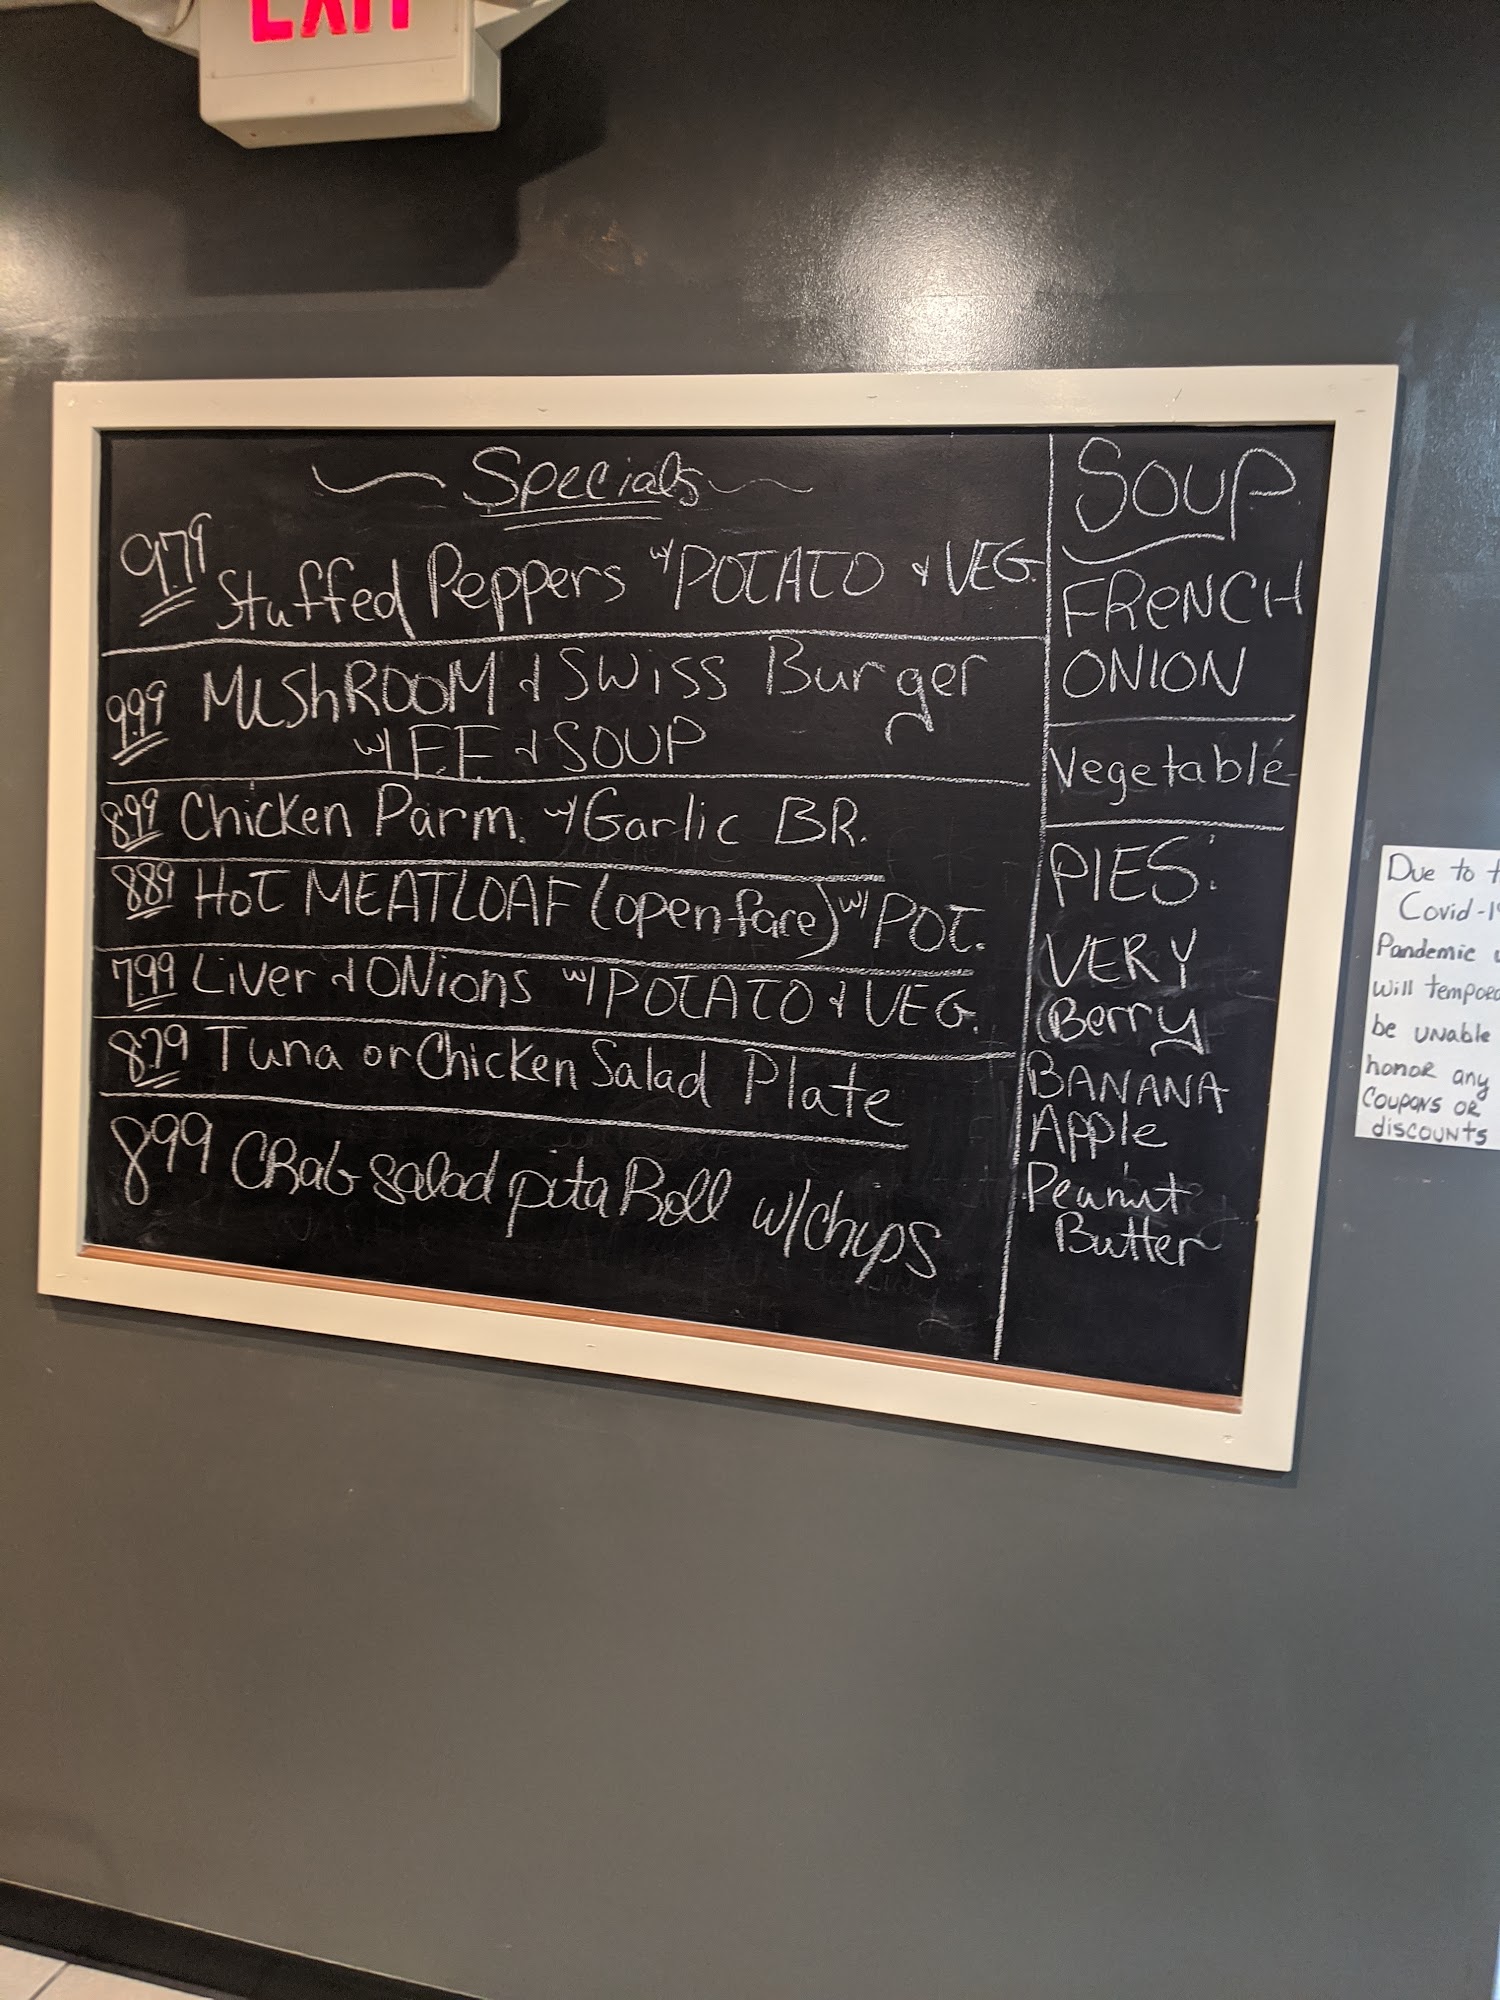 EXIT
Specials
9.79 Stuffed Peppers w/ POTATO & VEG.
9.99 MUShROOM & SWiSS Burger
w/ F.F. & SOUP
8.99 Chicken Parm. w/ Garlic BR.
8.89 HOT MEATLOAF (open face) w/ POT.
7.99 Liver & ONions w/ POTATO & VEG.
8.79 Tuna or Chicken Salad Plate
899 CRab Salad pita Roll w/chips
SOUP
FRENCH
ONION
Vegetable
PIES:
VERY
Berry
BANANA
Apple
Peanut
Butter
Due to t
Covid-19
Pandemic
will tempora
be UNable
honor any
Coupons OR
discounts